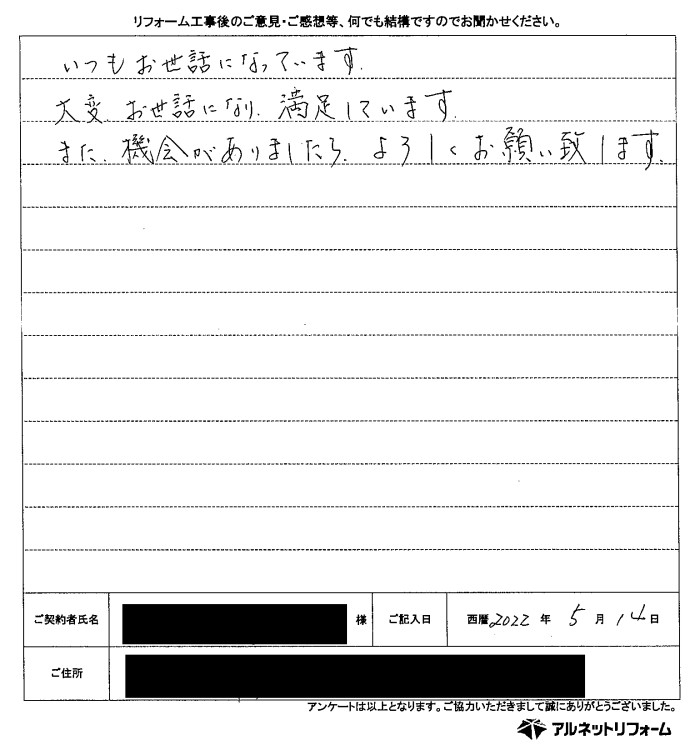 リフォーム工事後のご意見・ご感想等、何でも結構ですのでお聞かせください。
いつもお世話になっています.
大変.お世話になり.満足しています.
また.機会がありましたら.よろしくお願い致します.
ご契約者氏名 様 ご記入日 西暦2022年 5月 14日
ご住所
アンケートは以上となります。ご協力いただきまして誠にありがとうございました。
アルネットリフォーム